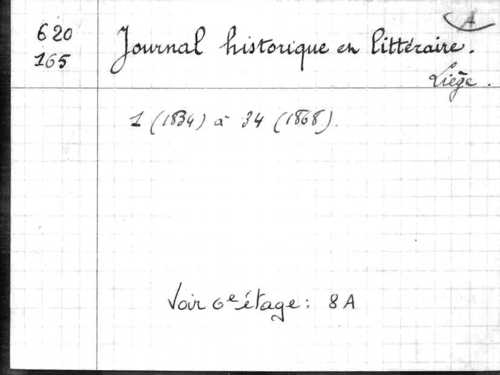 A
620
165
Journal historique en littéraire.
Liège.
1 (1834) à 34 (1868).
Voir 6e étage: 8A